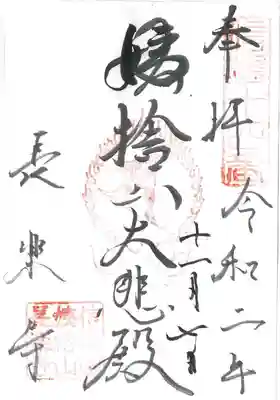 奉拝
令和二年
十一月六日
姨捨山大悲殿
長楽寺